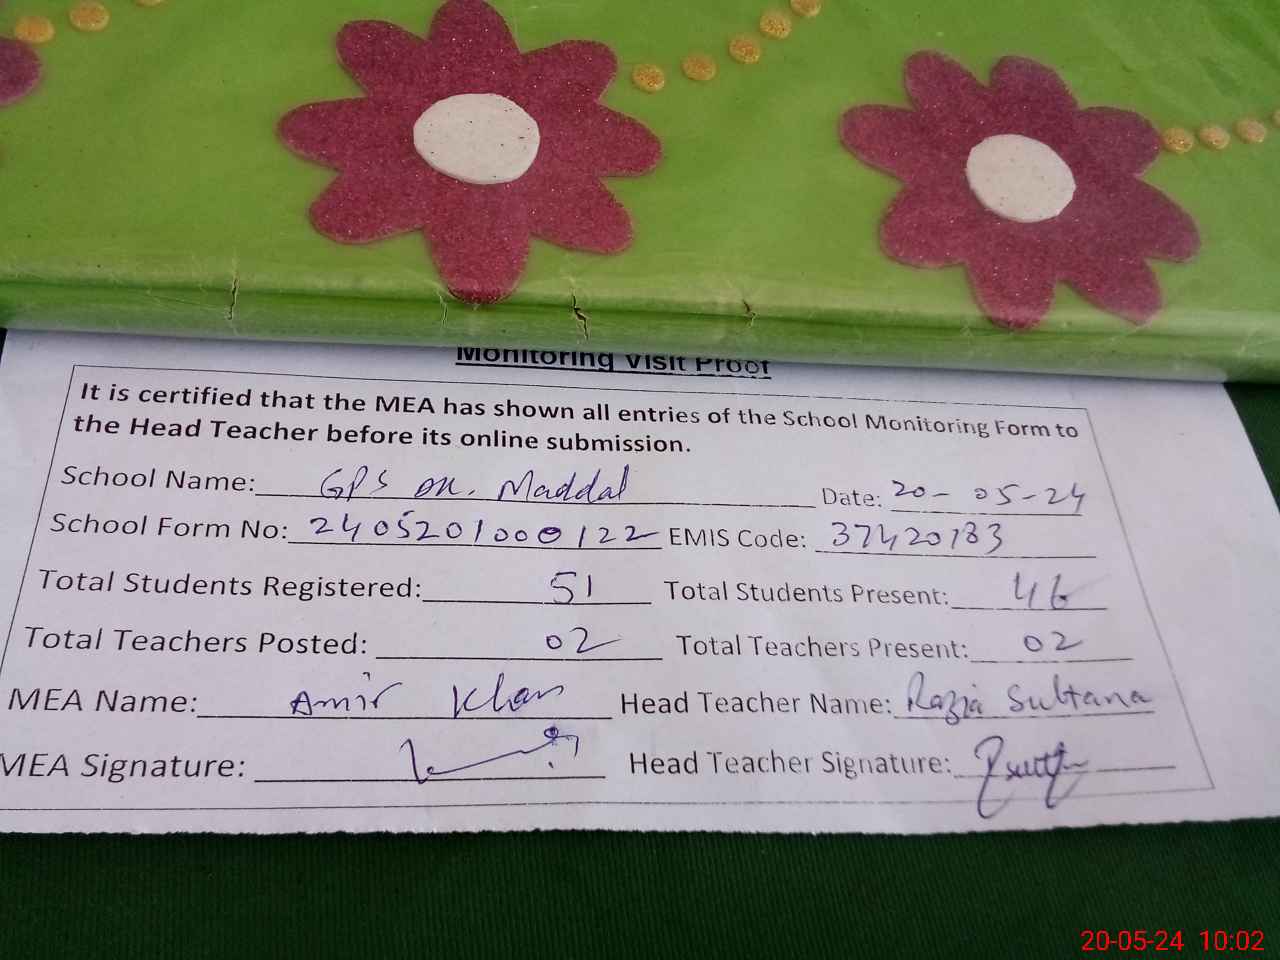 Monitoring Visit Proof
It is certified that the MEA has shown all entries of the School Monitoring Form to
the Head Teacher before its online submission.
School Name: GPS Maddal Date: 20-05-24
School Form No: 2405201000122 EMIS Code: 37420183
Total Students Registered: 51 Total Students Present: 46
Total Teachers Posted: 02 Total Teachers Present: 02
MEA Name: Amir Khan Head Teacher Name: Razia Sultana
MEA Signature: Head Teacher Signature:
20-05-24 10:02